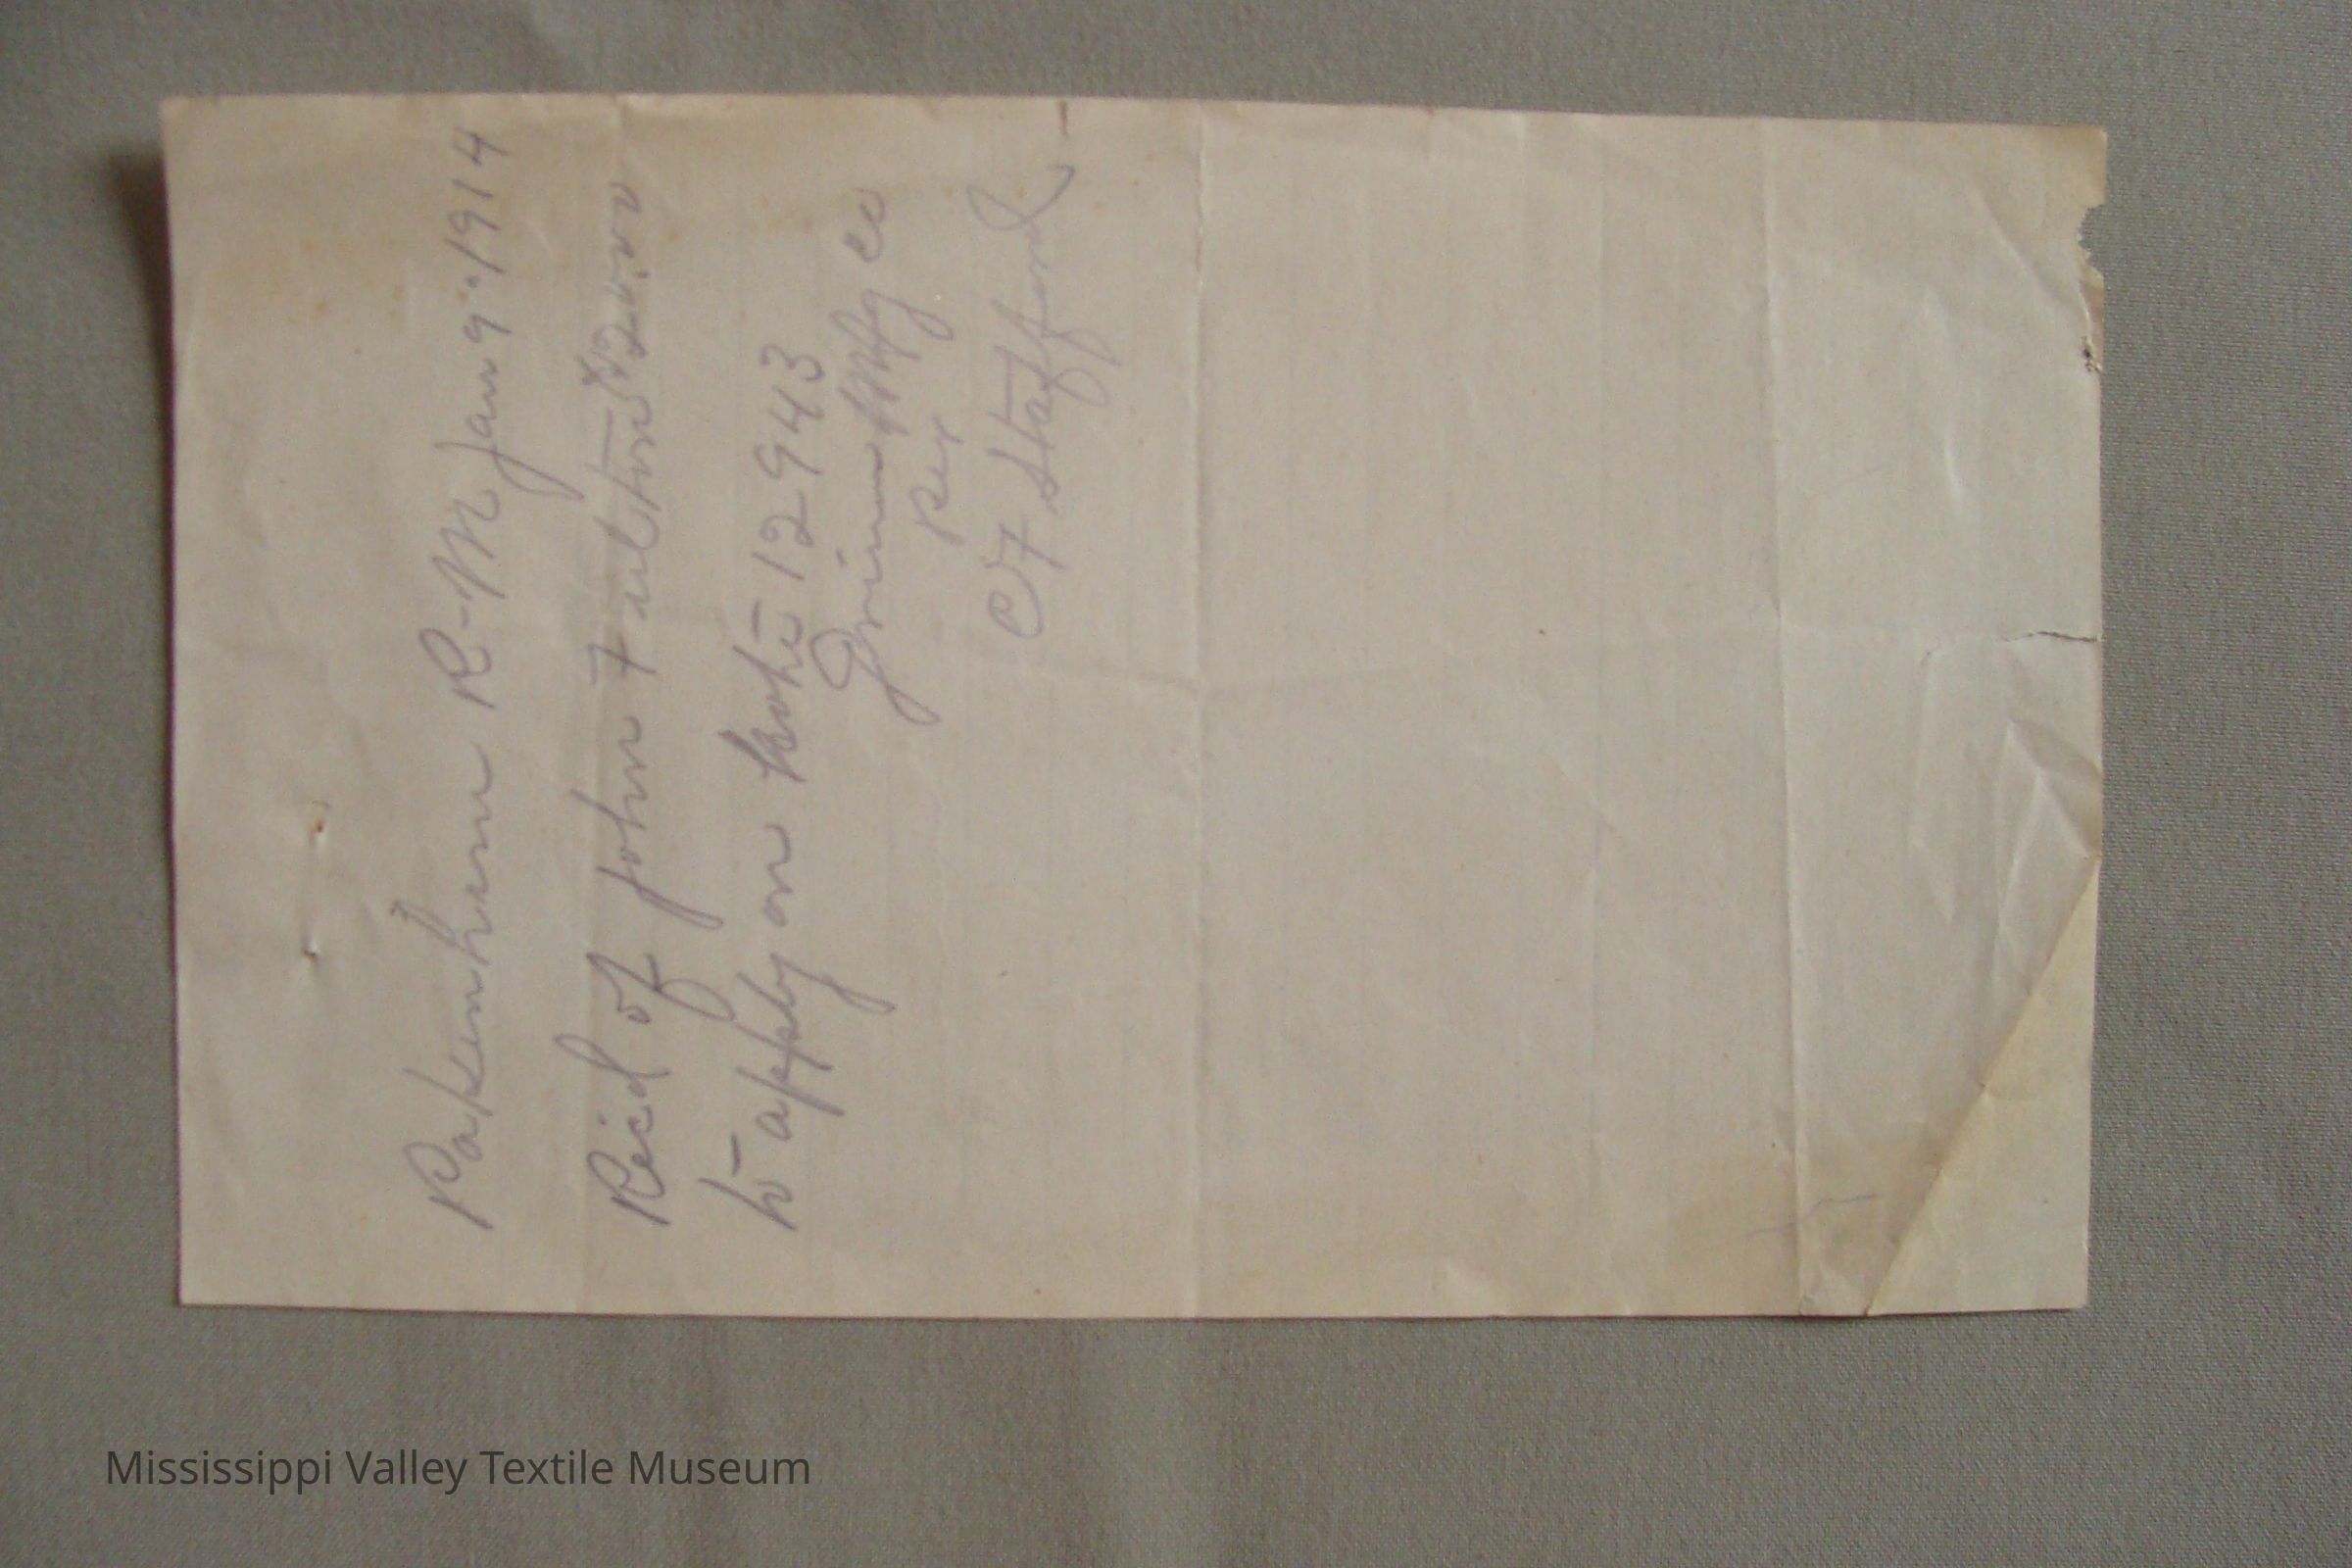 Pakenham R-M Jan 9" 1914
Recd of John Fulton $20.00
to apply on Note 12943
Grimm Mfg Co
Per
C F Stafford
Mississippi Valley Textile Museum